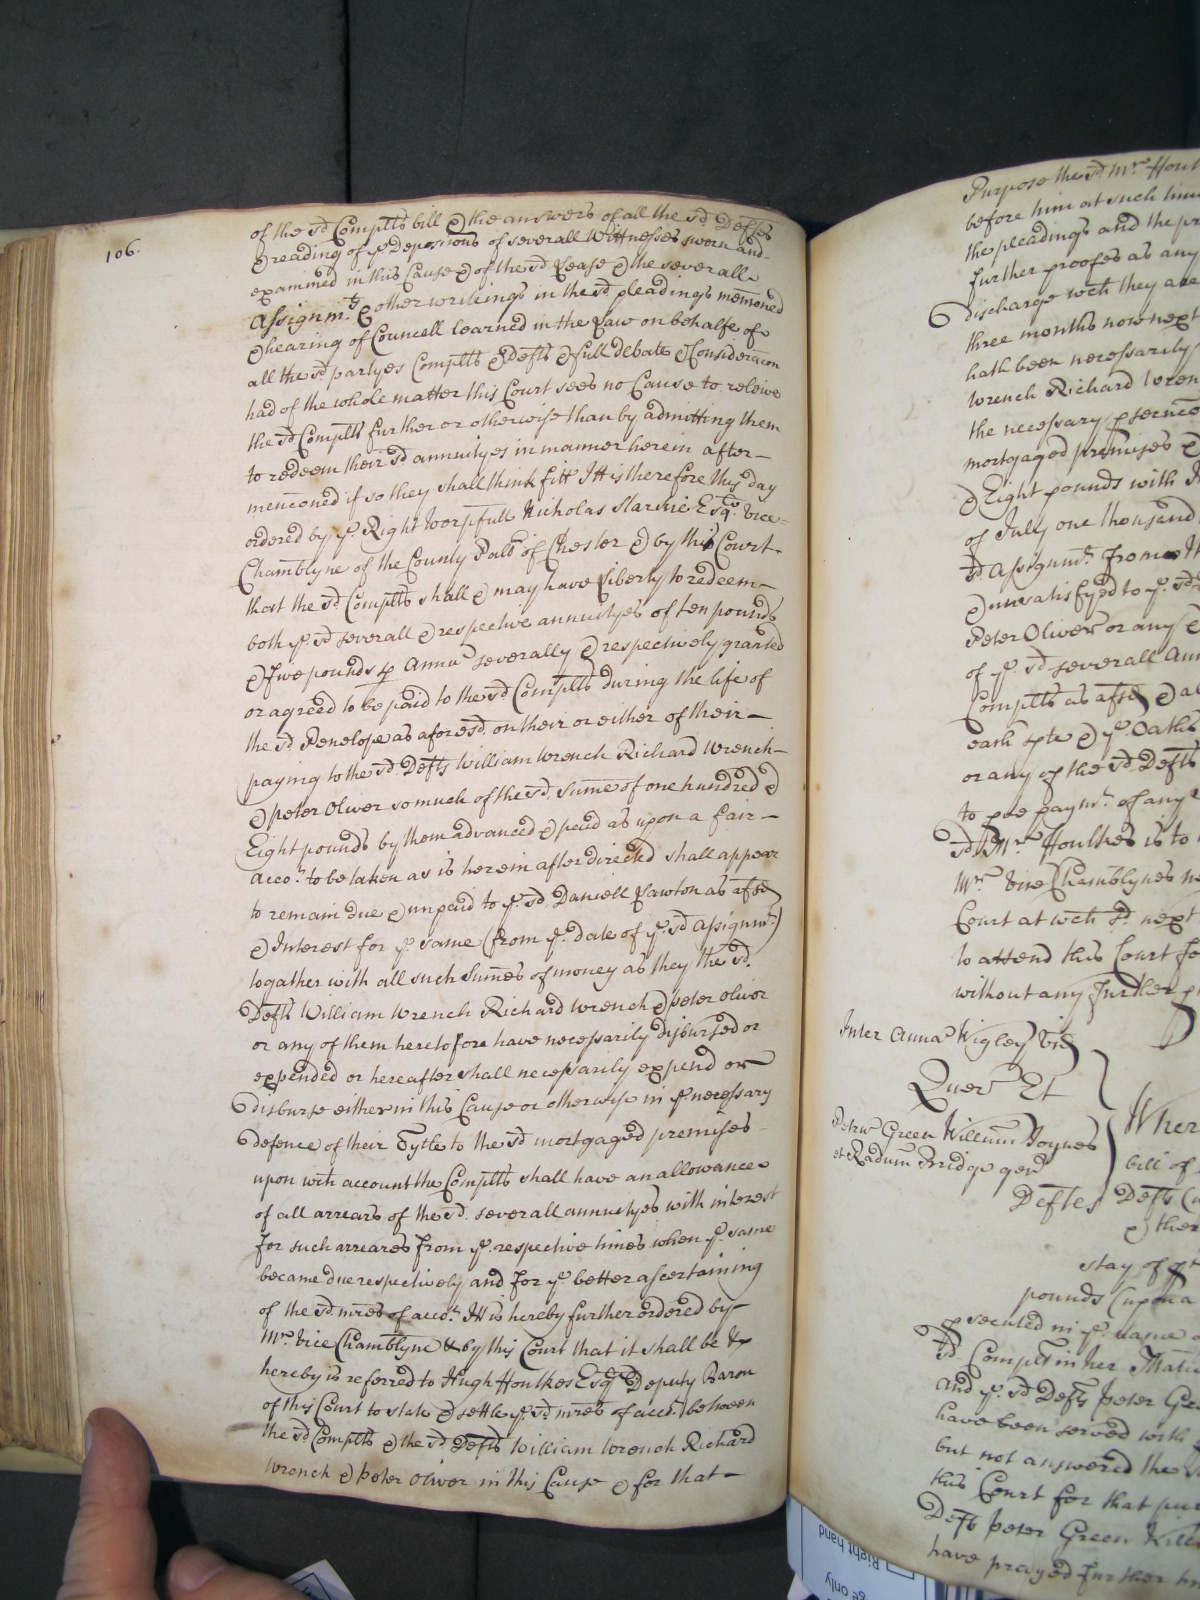 106.
of the sd Complts bill & the answers of all the sd Deftes
& reading of ye Depositions of severall Wittnesses sworn and
examined in this Cause & of the sd Lease & the severall
Assignmts & other writeings in the sd pleadings menc̄oned
& hearing of Councell learned in the Law on behalfe of
all the sd partyes Complts & Defts & full debate & Considerac̄on
had of the whole matter this Court sees no Cause to releive
the sd Complts further or otherwise than by admitting them
to redeem their sd annuityes in manner herein after
menc̄oned if so they shall think fitt It is therefore this day
ordered by ye Right Worpfull Nicholas Starkie Esqr. Vice
Chamblyne of the County Palt of Chester & by this Court
that the sd Complts shall & may have Liberty to redeem
both ye sd severall & respective annuityes of ten pounds
& Five pounds p Annu severally & respectively granted
or agreed to be paid to the sd Complts during the life of
the sd Penelope as aforesd. on their or either of their
paying to the sd Defts William Wrench Richard Wrench
& Peter Oliver so much of the sd. sum̄e of one hundred &
Eight pounds by them advanced & paid as upon a fair
accot. to be taken as is herein after directed shall appear
to remain due & unpaid to ye sd Daniell Lawton as afsd
& Interest for ye same (from ye. date of ye. sd Assignmt.)
togather with all such Sum̄es of money as they the sd.
Defts William Wrench Richard Wrench & Peter Oliver
or any of them heretofore have necessarily disbursed or
expended or hereafter shall necessarily expend or
disburse either in this Cause or otherwise in ye necessary
defence of their Tytle to the sd mortgaged premises
upon wch account the Complts shall have an allowance
of all arrears of the sd. severall annuityes with interest
for such arreares from ye. respective times when ye. same
became due respectively and for ye better ascertaining
of the sd mres of acct. It is hereby further ordered by
Mr. Vice Chamblyne & by this Court that it shall be &
hereby is referred to Hugh Foulkes Esqr Deputy Baron
of this Court to state & settle ye. sd mres of acct. between
the sd Complts & the sd Defts William Wrench Richard
Wrench & Peter Oliver in this Cause & for that
Purpose the sd Mr. Foul
before him at such time
the pleadings and the pr
further proofes as any
discharge wch they are
three months now next
hath been necessarily
Wrench Richard Wren
the necessary
mortgaged premises &
& Eight pounds with
of July one thousand
sd Assignmt. from
& unsatisfyed to ye. sd
Peter Oliver or any
of ye. sd severall Ann
Complts as afsd & al
each pte & ye. Oaths
or any of the sd Defts
to paymt. of any
sd Mr. Foulkes is to
Mr. Vice Chamblynes
Court at wch sd. next
to attend this Court fo
without any further
Inter Anna Wigley Vid
Quer Et
Petru Green Willum Joynes
et Radum Bridge gen
Deftes
Wher
bill of
Defts
& ther
stay of
pounds (upon a
psecuted in ye. name
sd Complt in her
and ye. sd Defts Peter Gre
have been served with
but not answered the
this Court for that pur
Defts Peter Green Will
have prayed further
Right hand
ge only